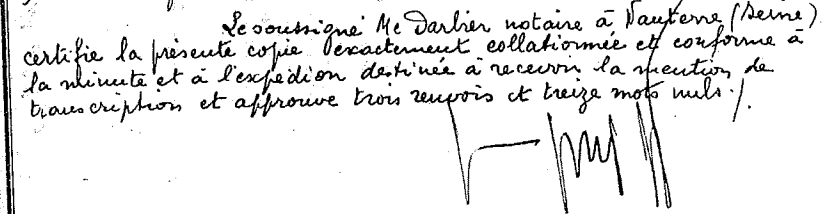 Le soussigné Me Darlier notaire à Nanterre (Seine)
certifie la présente copie exactement collationnée et conforme à
la minute et à l'expédion destinée à recevoir la mention de
transcription et approuve trois renvois et treize mots nuls./.